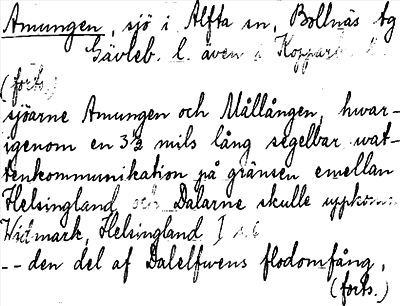 Amungen, sjö i Alfta sn, Bollnäs tg
Gävleb. l. även i Koppar
(forts.)
sjöarne Amungen och Mållången, hvar-
igenom en 3½ mils lång segelbar wat-
tenkommunikation på gränsen emellan
Helsingland och Dalarne skulle uppkom
Widmark, Helsingland I s.6
-- den del af Dalelfwens flodomfång,
(forts.)